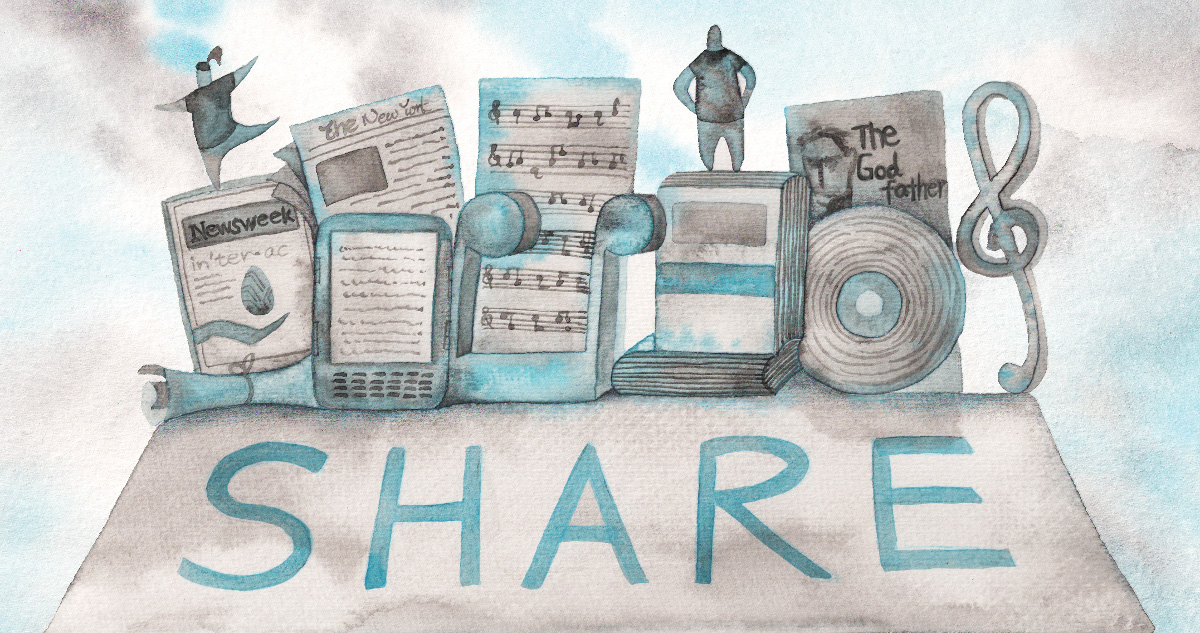 The New York
Newsweek
in'ter-ac
The
God
father
SHARE